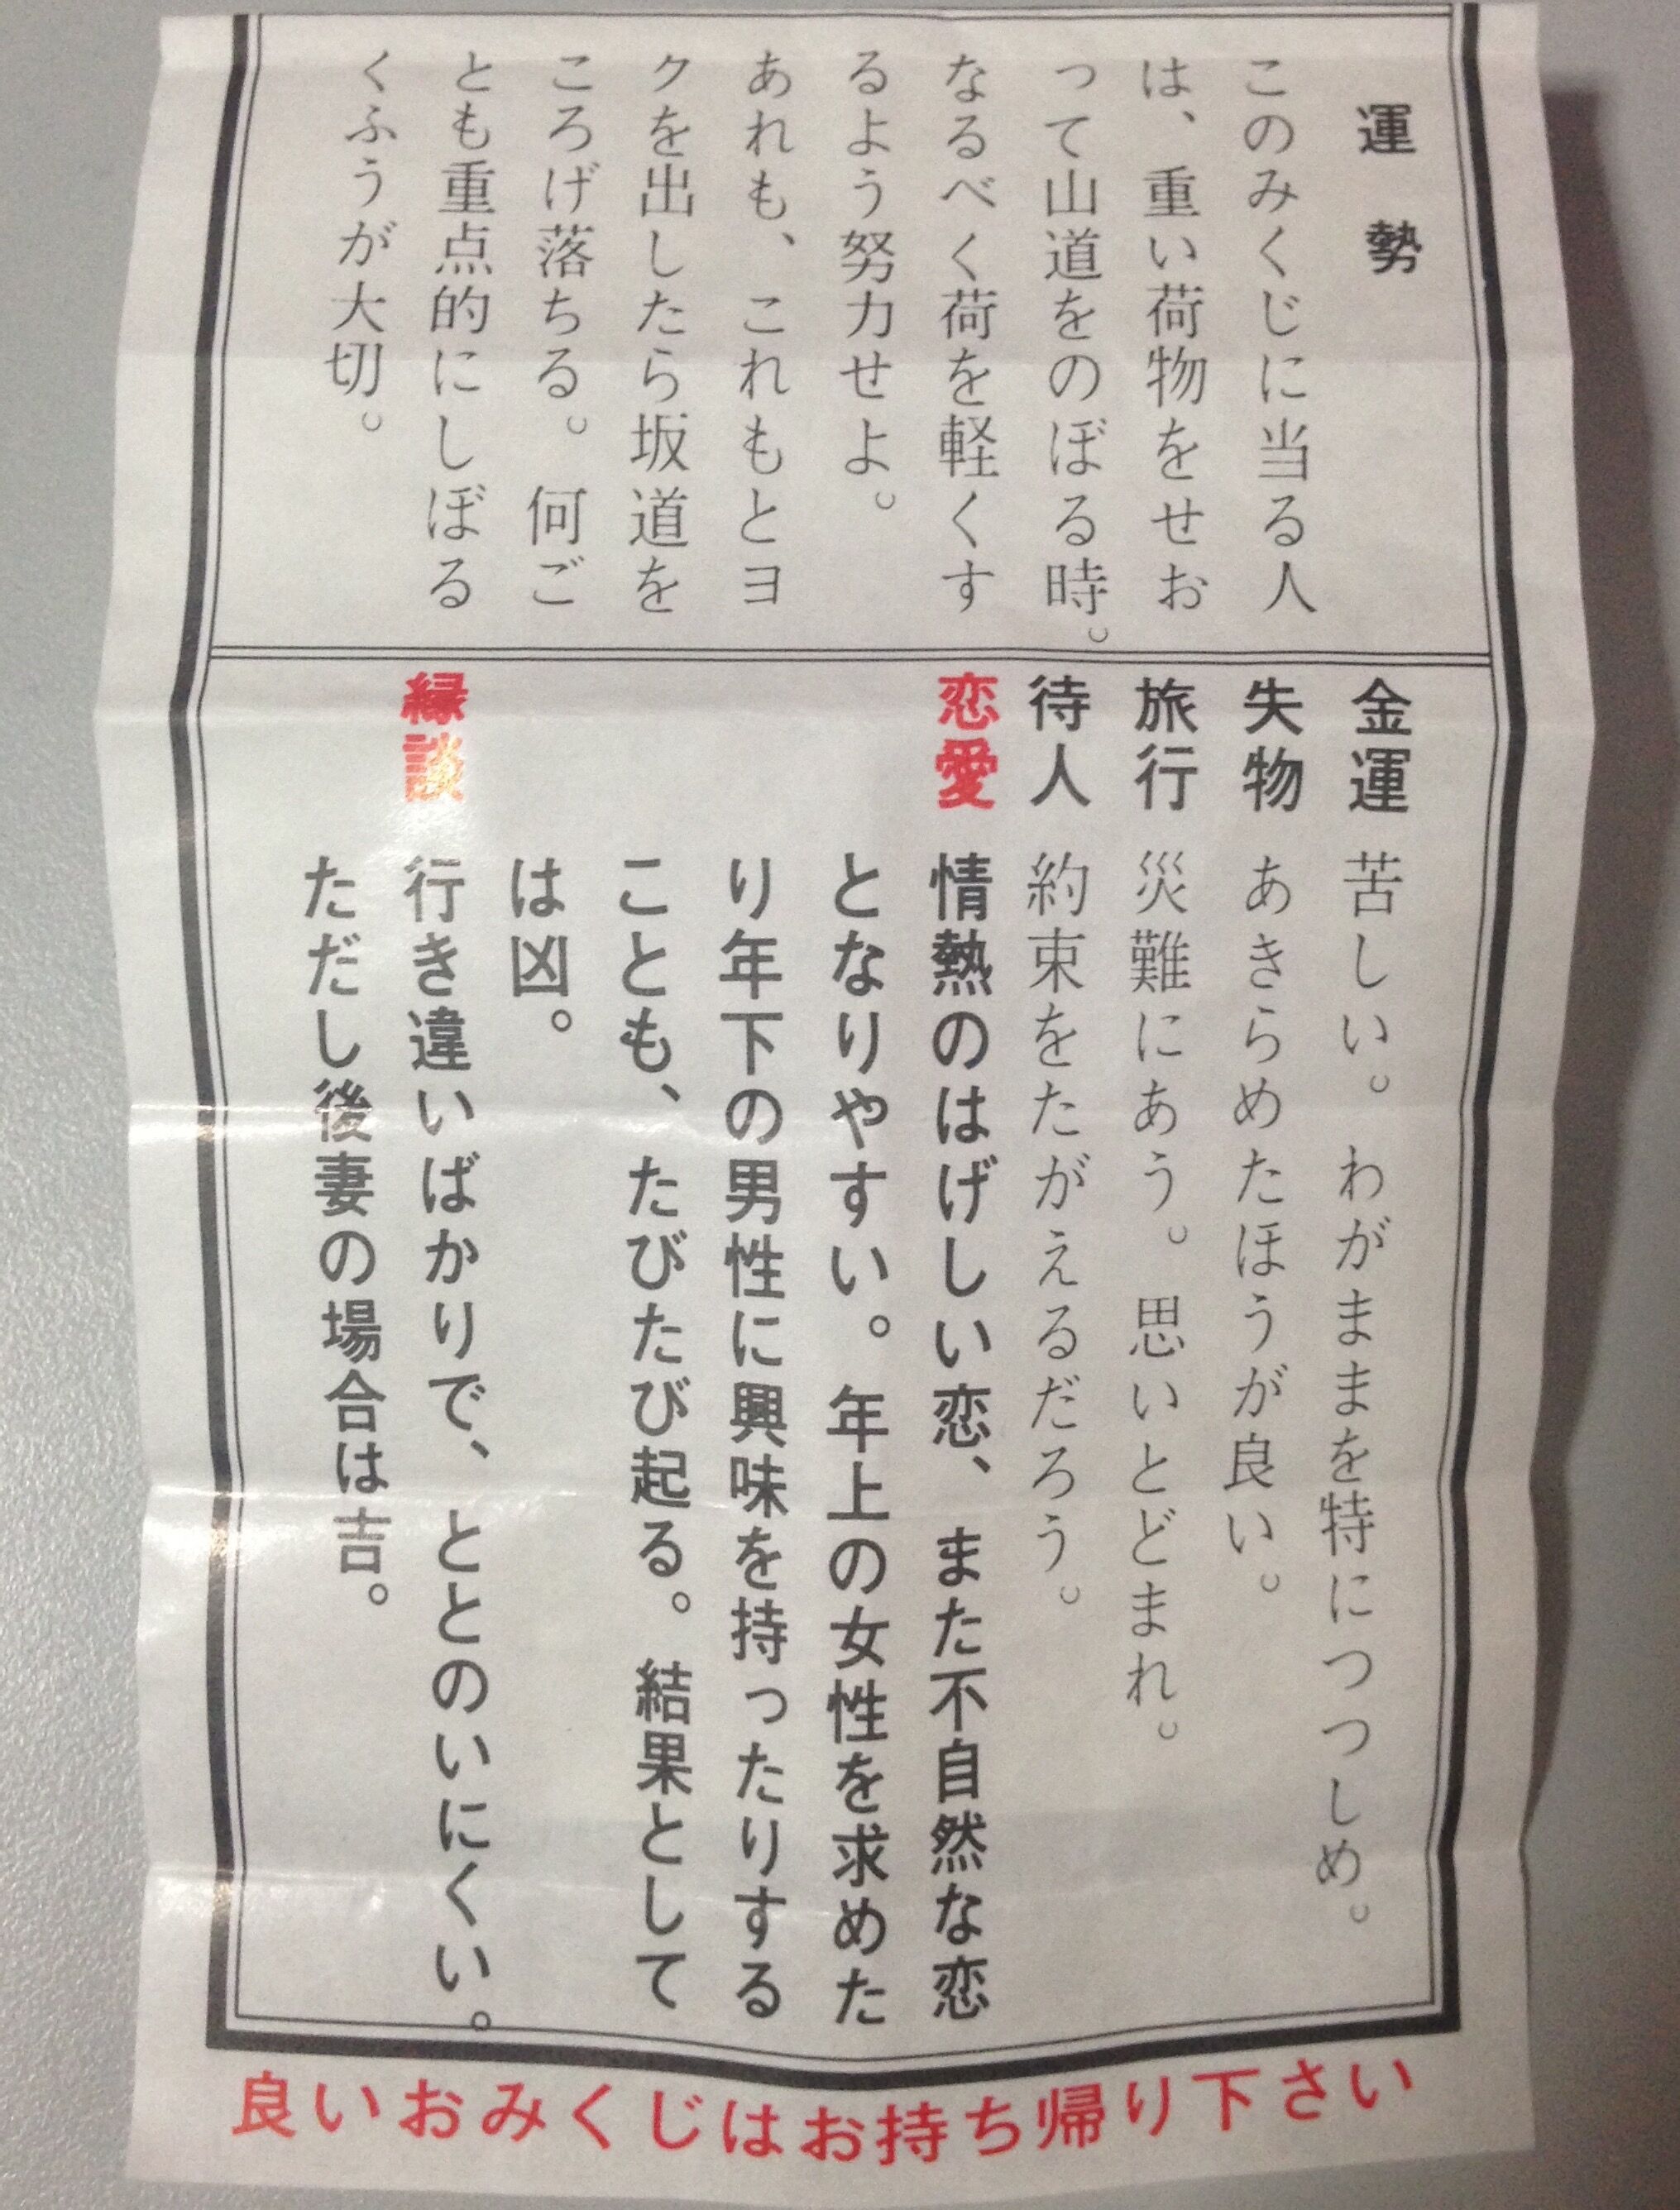 運勢
このみくじに当る人
は、重い荷物をせお
って山道をのぼる時。
なるべく荷を軽くす
るよう努力せよ。
あれも、これもとヨ
クを出したら坂道を
ころげ落ちる。何ご
とも重点的にしぼる
くふうが大切。
金運 苦しい。わがままを特につつしめ。
失物 あきらめたほうが良い。
旅行 災難にあう。思いとどまれ。
待人 約束をたがえるだろう。
恋愛 情熱のはげしい恋、また不自然な恋
となりやすい。年上の女性を求めた
り年下の男性に興味を持ったりする
ことも、たびたび起る。結果として
は凶。
縁談 行き違いばかりで、ととのいにくい。
ただし後妻の場合は吉。
良いおみくじはお持ち帰り下さい